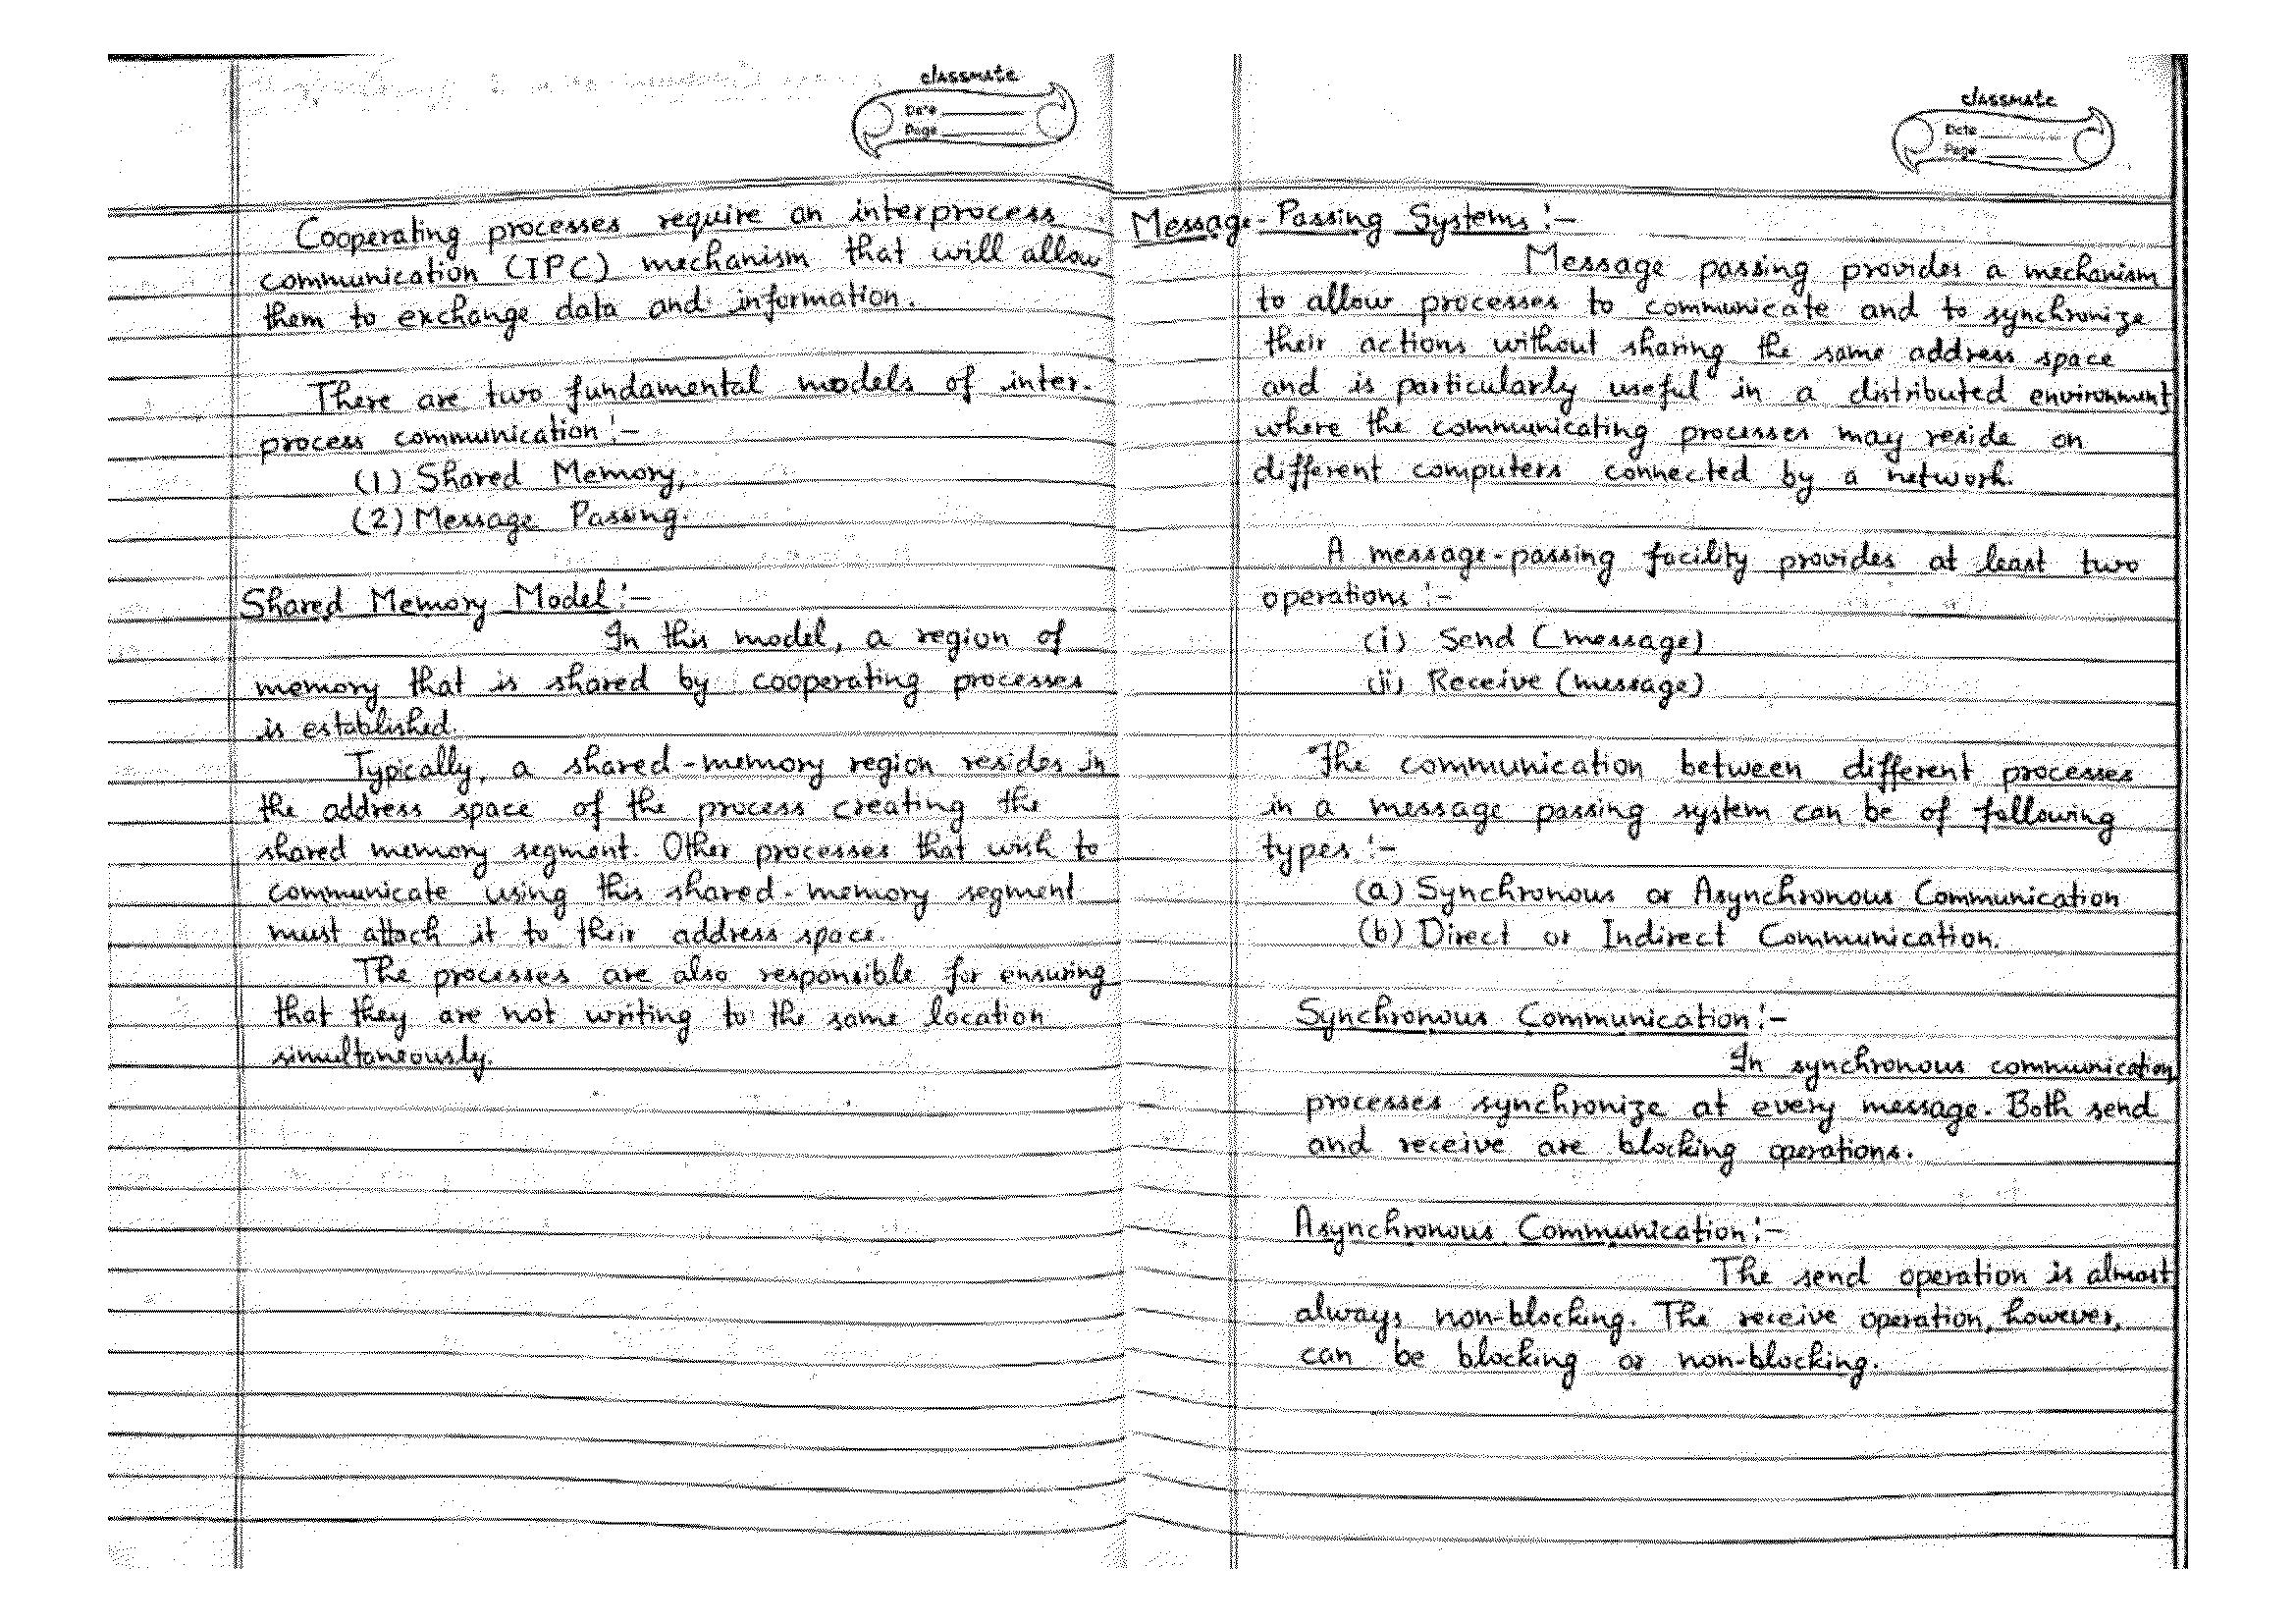 classmate
Date
Page
Cooperating processes require an interprocess
communication (IPC) mechanism that will allow
them to exchange data and information.
There are two fundamental models of inter-
process communication:-
(1) Shared Memory,
(2) Message Passing.
Shared Memory Model:-
In this model, a region of
memory that is shared by cooperating processes
is established.
Typically, a shared-memory region resides in
the address space of the process creating the
shared memory segment. Other processes that wish to
communicate using this shared-memory segment
must attach it to their address space.
The processes are also responsible for ensuring
that they are not writing to the same location
simultaneously.
classmate
Date
Page
Message-Passing Systems:-
Message passing provides a mechanism
to allow processes to communicate and to synchronize
their actions without sharing the same address space
and is particularly useful in a distributed environment
where the communicating processes may reside on
different computers connected by a network.
A message-passing facility provides at least two
operations:-
(i) Send (message)
(ii) Receive (message)
The communication between different processes
in a message passing system can be of following
types:-
(a) Synchronous or Asynchronous Communication
(b) Direct or Indirect Communication.
Synchronous Communication:-
In synchronous communication,
processes synchronize at every message. Both send
and receive are blocking operations.
Asynchronous Communication:-
The send operation is almost
always non-blocking. The receive operation, however,
can be blocking or non-blocking.